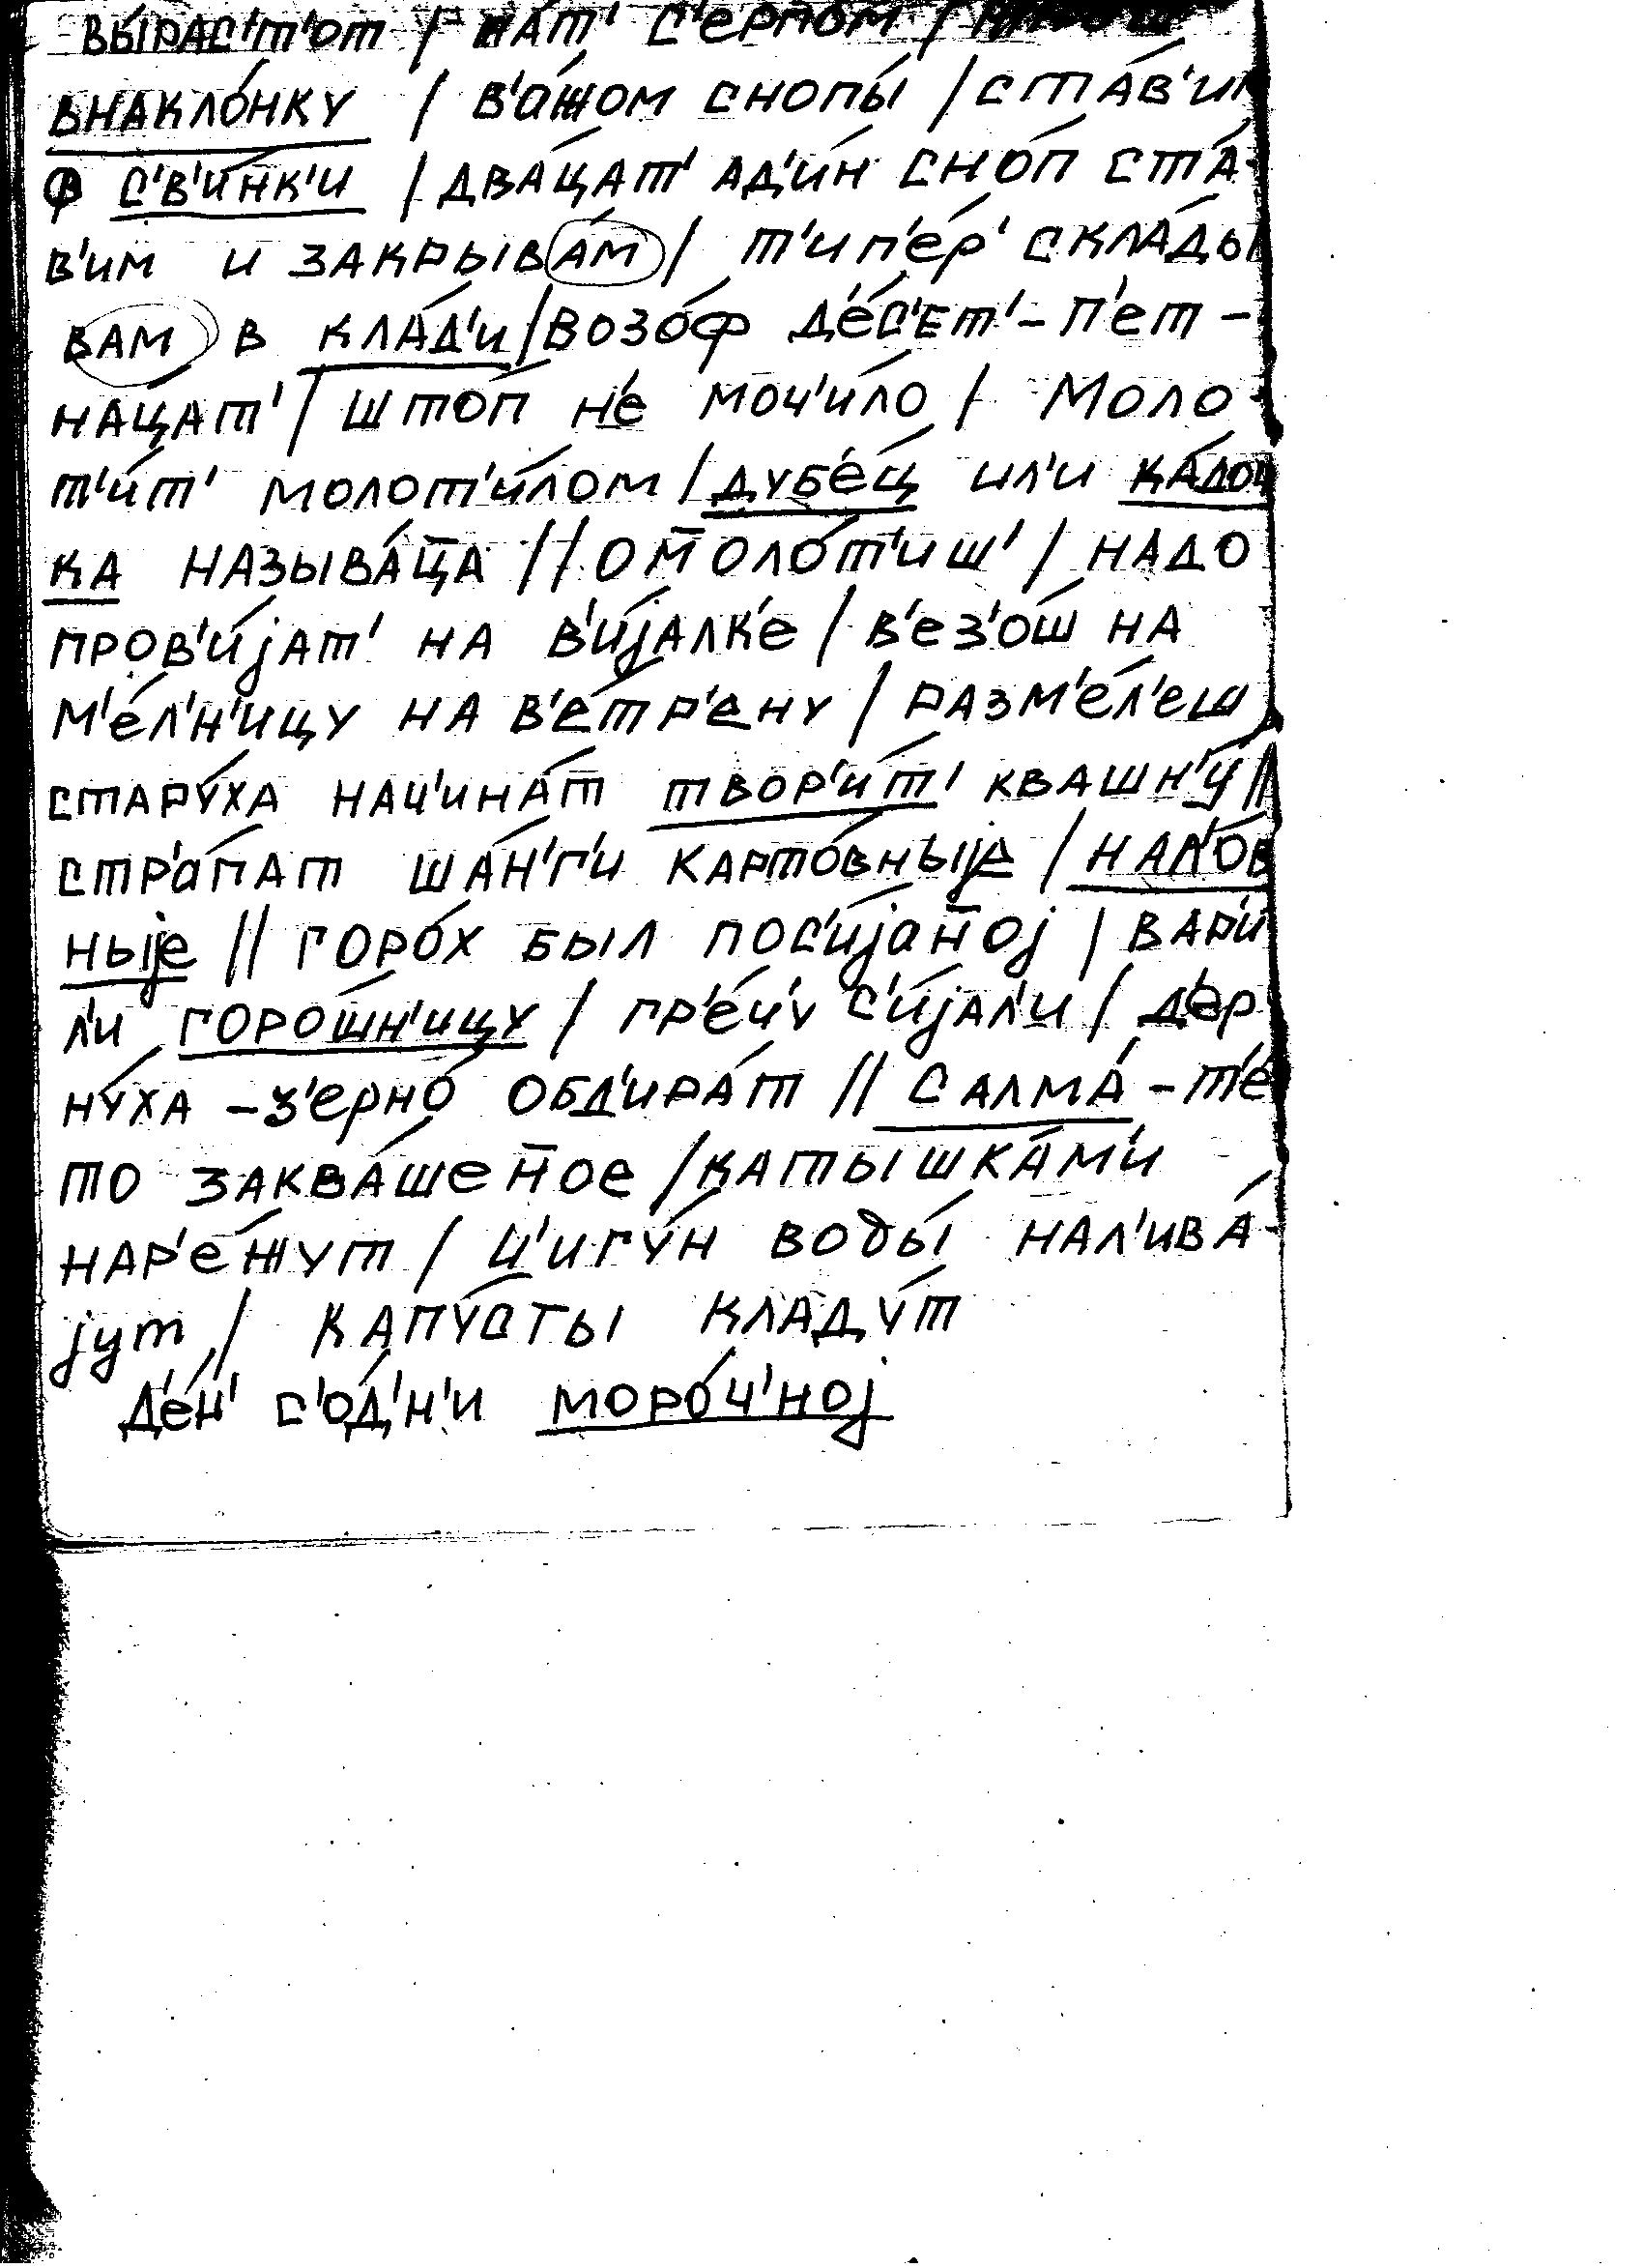 вы́рас'т'от / жат' с'ерпо́м /
внакло́нку / в'а́жом снопы́ / ста́в'им
ф с'в'и́нк'и / два́цат' ад'и́н сно́п ста́-
в'им и закрыва́м / т'ип'е́р' скла́ды
вам в кла́д'и / возо́ф д'е́с'ет'-п'ет-
на́цат' / што́п н'е моч'и́ло / моло-
т'и́т' молот'и́лом / дуб'е́ц ил'и ка́доч
ка называ́ц̄а // ом̄оло́т'иш' / надо
пров'и́јат' на в'и́јалк'е / в'ез'о́ш на
м'е́л'н'ицу на в'е́тр'ену / разм'е́л'еш
стару́ха нач'ина́т твор'и́т' квашн'у́ //
стр'а́пат ша́н'г'и карто́вныје / нал'о́в
ныје // горо́х был пос'и́јан̄ој / вар'и́
л'и горо́шн'ицу / гр'е́ч'у с'и́јал'и / д'ер
ну́ха - з'ерно́ обд'ира́т // салма́ - т'е́
то заква́шен̄ое / катышка́м'и
нар'е́жут / ч'игу́н воды́ нал'ива́-
јут / капу́сты кладу́т
д'е́н' с'о́д'н'и моро́ч'ној